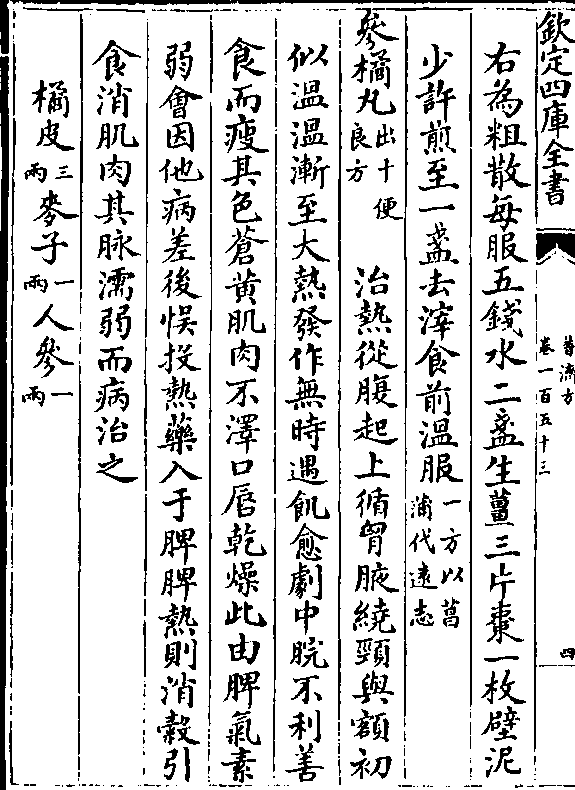 欽定四庫全書
普濟方
卷一百五十三
四
右為粗散每服五錢水二盞生薑三片棗一枚壁泥
少許煎至一盞去滓食前温服一方以菖蒲代遠志
參橘丸出十便良方 治熱從腹起上循胷腋繞頸與額初
似温温漸至大熱發作無時遇飢愈劇中脘不利善
食而瘦其色蒼黄肌肉不澤口唇乾燥此由脾氣素
弱會因他病差後悮投熱藥入于脾脾熱則消糓引
食消肌肉其脉濡弱而病治之
橘皮三兩 麥子一兩 人參一兩